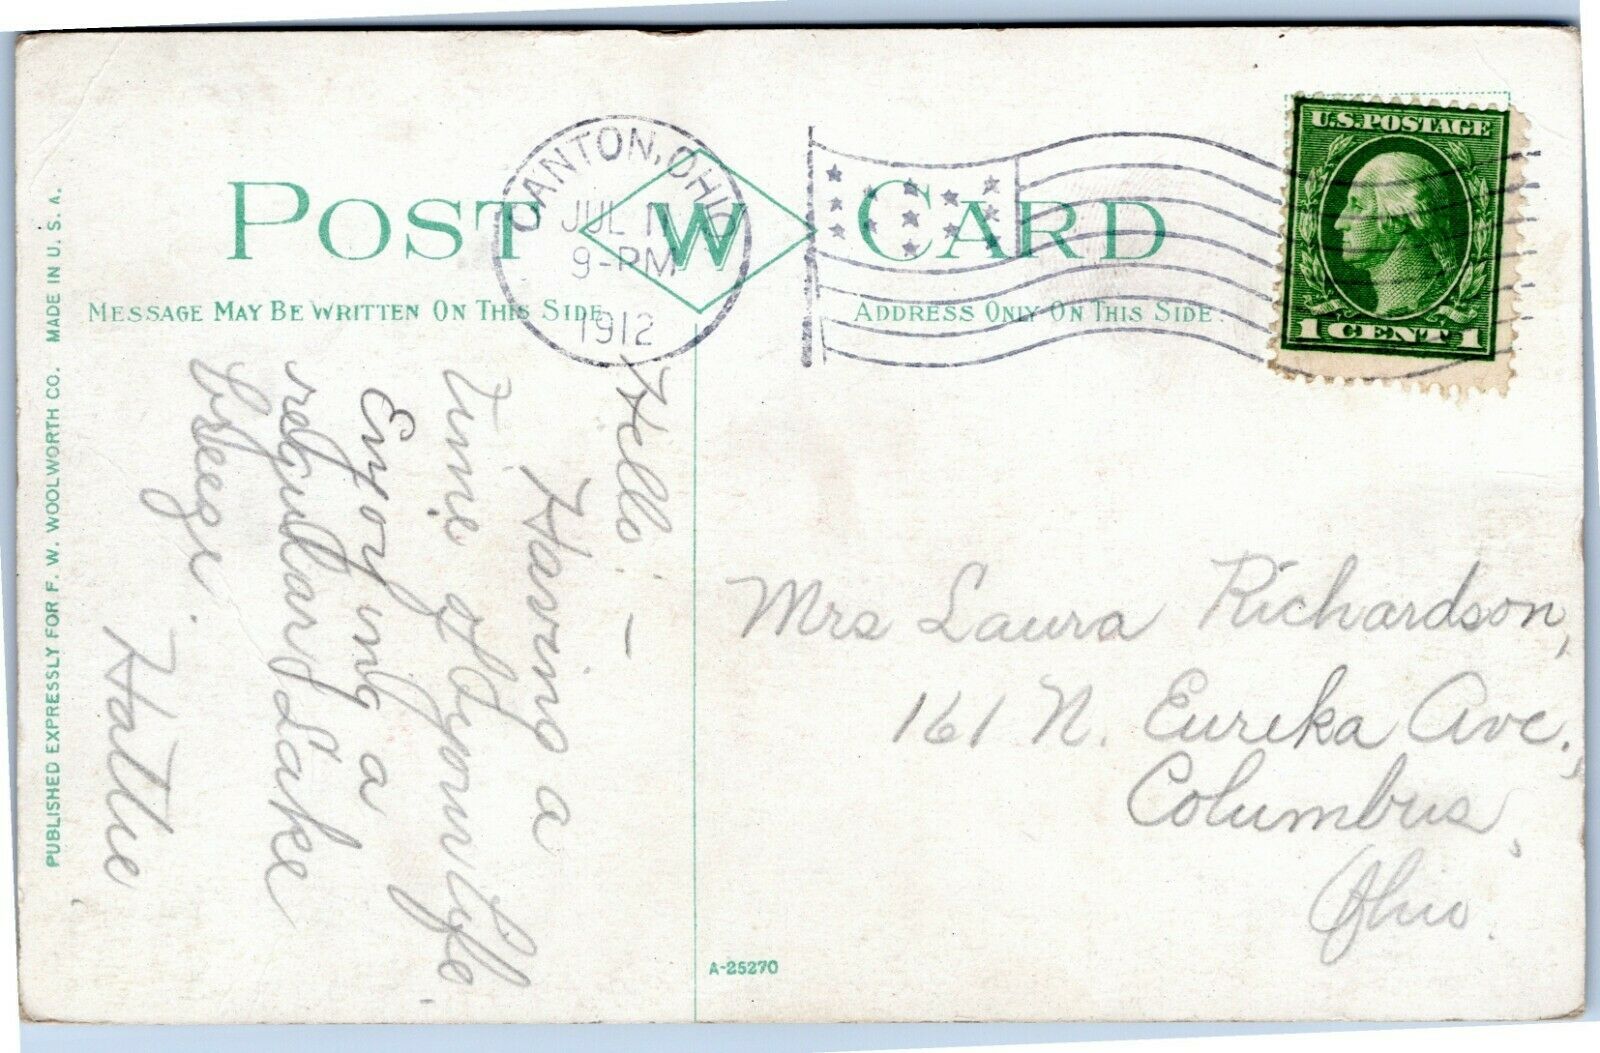 POST W CARD
MESSAGE MAY BE WRITTEN ON THIS SIDE
ADDRESS ONLY ON THIS SIDE
CANTON, OHIO
JUL
9-PM
1912
U.S. POSTAGE
1 CENT 1
Hello –
Having a
time of your life.
Enjoying a
regular Lake
breeze.
Hattie
Mrs Laura Richardson,
161 N. Eureka Ave.,
Columbus,
Ohio.
A-25270
PUBLISHED EXPRESSLY FOR F. W. WOOLWORTH CO. MADE IN U. S. A.